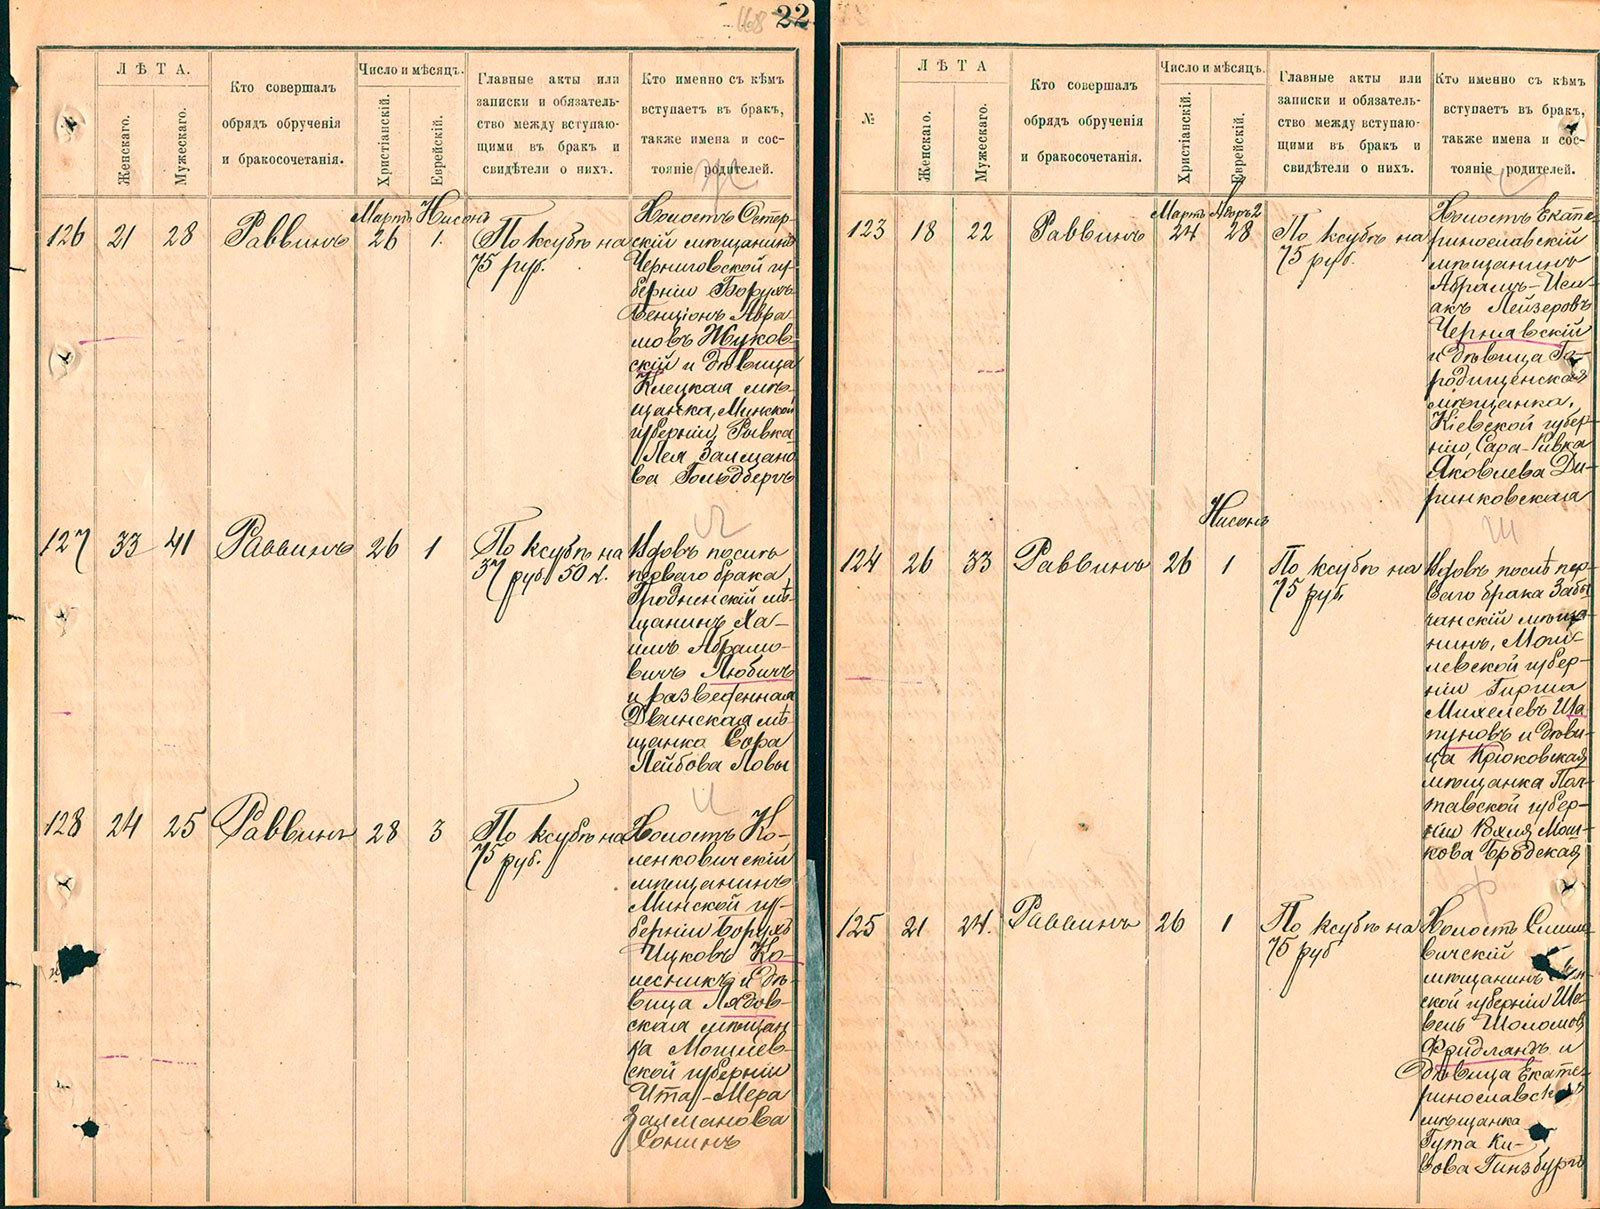 168 22
ЛѢТА.
Женскаго.
Мужескаго.
Кто совершалъ
обрядъ обрученія
и бракосочетанія.
Число и мѣсяцъ.
Христіанскій.
Еврейскій.
Главные акты или
записки и обязатель-
ство между вступаю-
щими въ бракъ и
свидѣтели о нихъ.
Кто именно съ кѣмъ
вступаетъ въ бракъ,
также имена и сос-
тояніе родителей.
126 21 28 Раввинъ
Мартъ Нисонъ
26 1.
По ксубѣ на
75 руб.
Холостъ Остер
скій мѣщанинъ
Черниговской гу-
берніи Борухъ
Бенціонъ Авра
мовъ Жуков-
скій и дѣвица
Клецкая мѣ-
щанка, Минской
губерніи, Рывка
Лея Залмано
ва Гольдбергъ
127 33 41 Раввинъ 26 1
По ксубѣ на
37 руб. 50 к.
Вдовъ послѣ
перваго брака
Гродненскій мѣ-
щанинъ Ха-
имъ Абрамо-
вичъ Любичъ
и разведенная
Двинская мѣ
щанка Сора
Лейбова Ловы
128 24 25 Раввинъ 28 3
По ксубѣ на
75 руб.
Холостъ Ко-
ленковичскій
мѣщанинъ
Минской гу-
берніи Борухъ
Ицковъ Ко-
лесникъ и дѣ-
вица Лядов-
ская мѣщан
ка Могилев-
ской губерніи
Ита-Мера
Залманова
Сонинъ
№
ЛѢТА
Женскаго.
Мужескаго.
Кто совершалъ
обрядъ обрученія
и бракосочетанія.
Число и мѣсяцъ.
Христіанскій.
Еврейскій.
Главные акты или
записки и обязатель-
ство между вступаю-
щими въ бракъ и
свидѣтели о нихъ.
Кто именно съ кѣмъ
вступаетъ въ бракъ,
также имена и сос-
тояніе родителей.
123 18 22 Раввинъ
Мартъ Адаръ 2
24 28
По ксубѣ на
75 руб.
Холостъ Екате
ринославскій
мѣщанинъ
Абрамъ-Исаакъ
Лейзеровъ
Чернявскій
и дѣвица Го-
родищенская
мѣщанка,
Кіевской губер-
ніи, Сара-Ривка
Яковлева Ди-
ринковская
Нисонъ
124 26 33 Раввинъ 26 1
По ксубѣ на
75 руб.
Вдовъ послѣ пер-
ваго брака Забы
чанскій мѣща-
нинъ, Моги-
левской губер-
ніи Гирша
Михелевъ Ша
пуновъ и дѣви-
ца Крюковская
мѣщанка Пол-
тавской губер-
ніи Рохля Мош-
кова Бродская
125 21 24. Раввинъ 26 1
По ксубѣ на
75 руб
Холостъ Смило
вичскій
мѣщанинъ
ской губерніи Шо-
вель Шоломов
Фридландъ и
дѣвица Екате-
ринославская
мѣщанка
Гута Ки-
вова Гинзбургъ